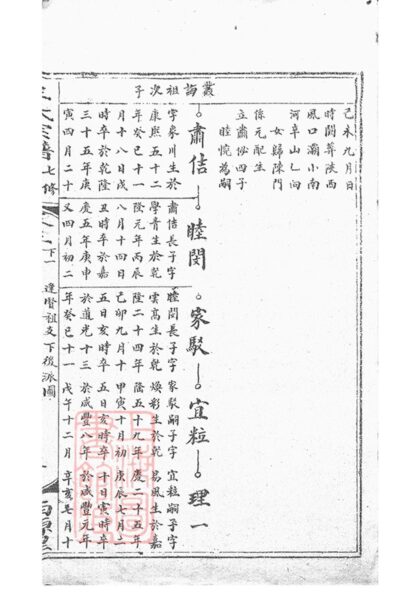 叢誨祖次子
己未九月日
時閩葬陝西
風口灞小南
女歸陳門
係元配生
立肅佖四子
睦悅為嗣
肅佶 睦閔 家馭 宜粒 理一
字象川生於
康熙五十二
年癸巳十一
月十八日戌
時卒於乾隆
三十五年庚
寅四月二十
肅佶長子字
學青生於乾
隆元年丙辰
八月十四日
丑時卒於嘉
慶五年庚申
又四月初二
睦閔長子字
雲高生於乾
隆二十四年
己卯九月十
五日亥時卒
於道光十三
年癸巳十一
家馭嗣子字
煥彩生於乾
隆五十九年
甲寅十月初
五日亥時卒
於咸豐八年
戊午十二月
宜粒嗣子字
易風生於嘉
慶二十五年
庚辰七月二
十日寅時卒
於咸豐元年
辛亥七月十
氏宗譜 七修
下一
達賢祖支下後派圖